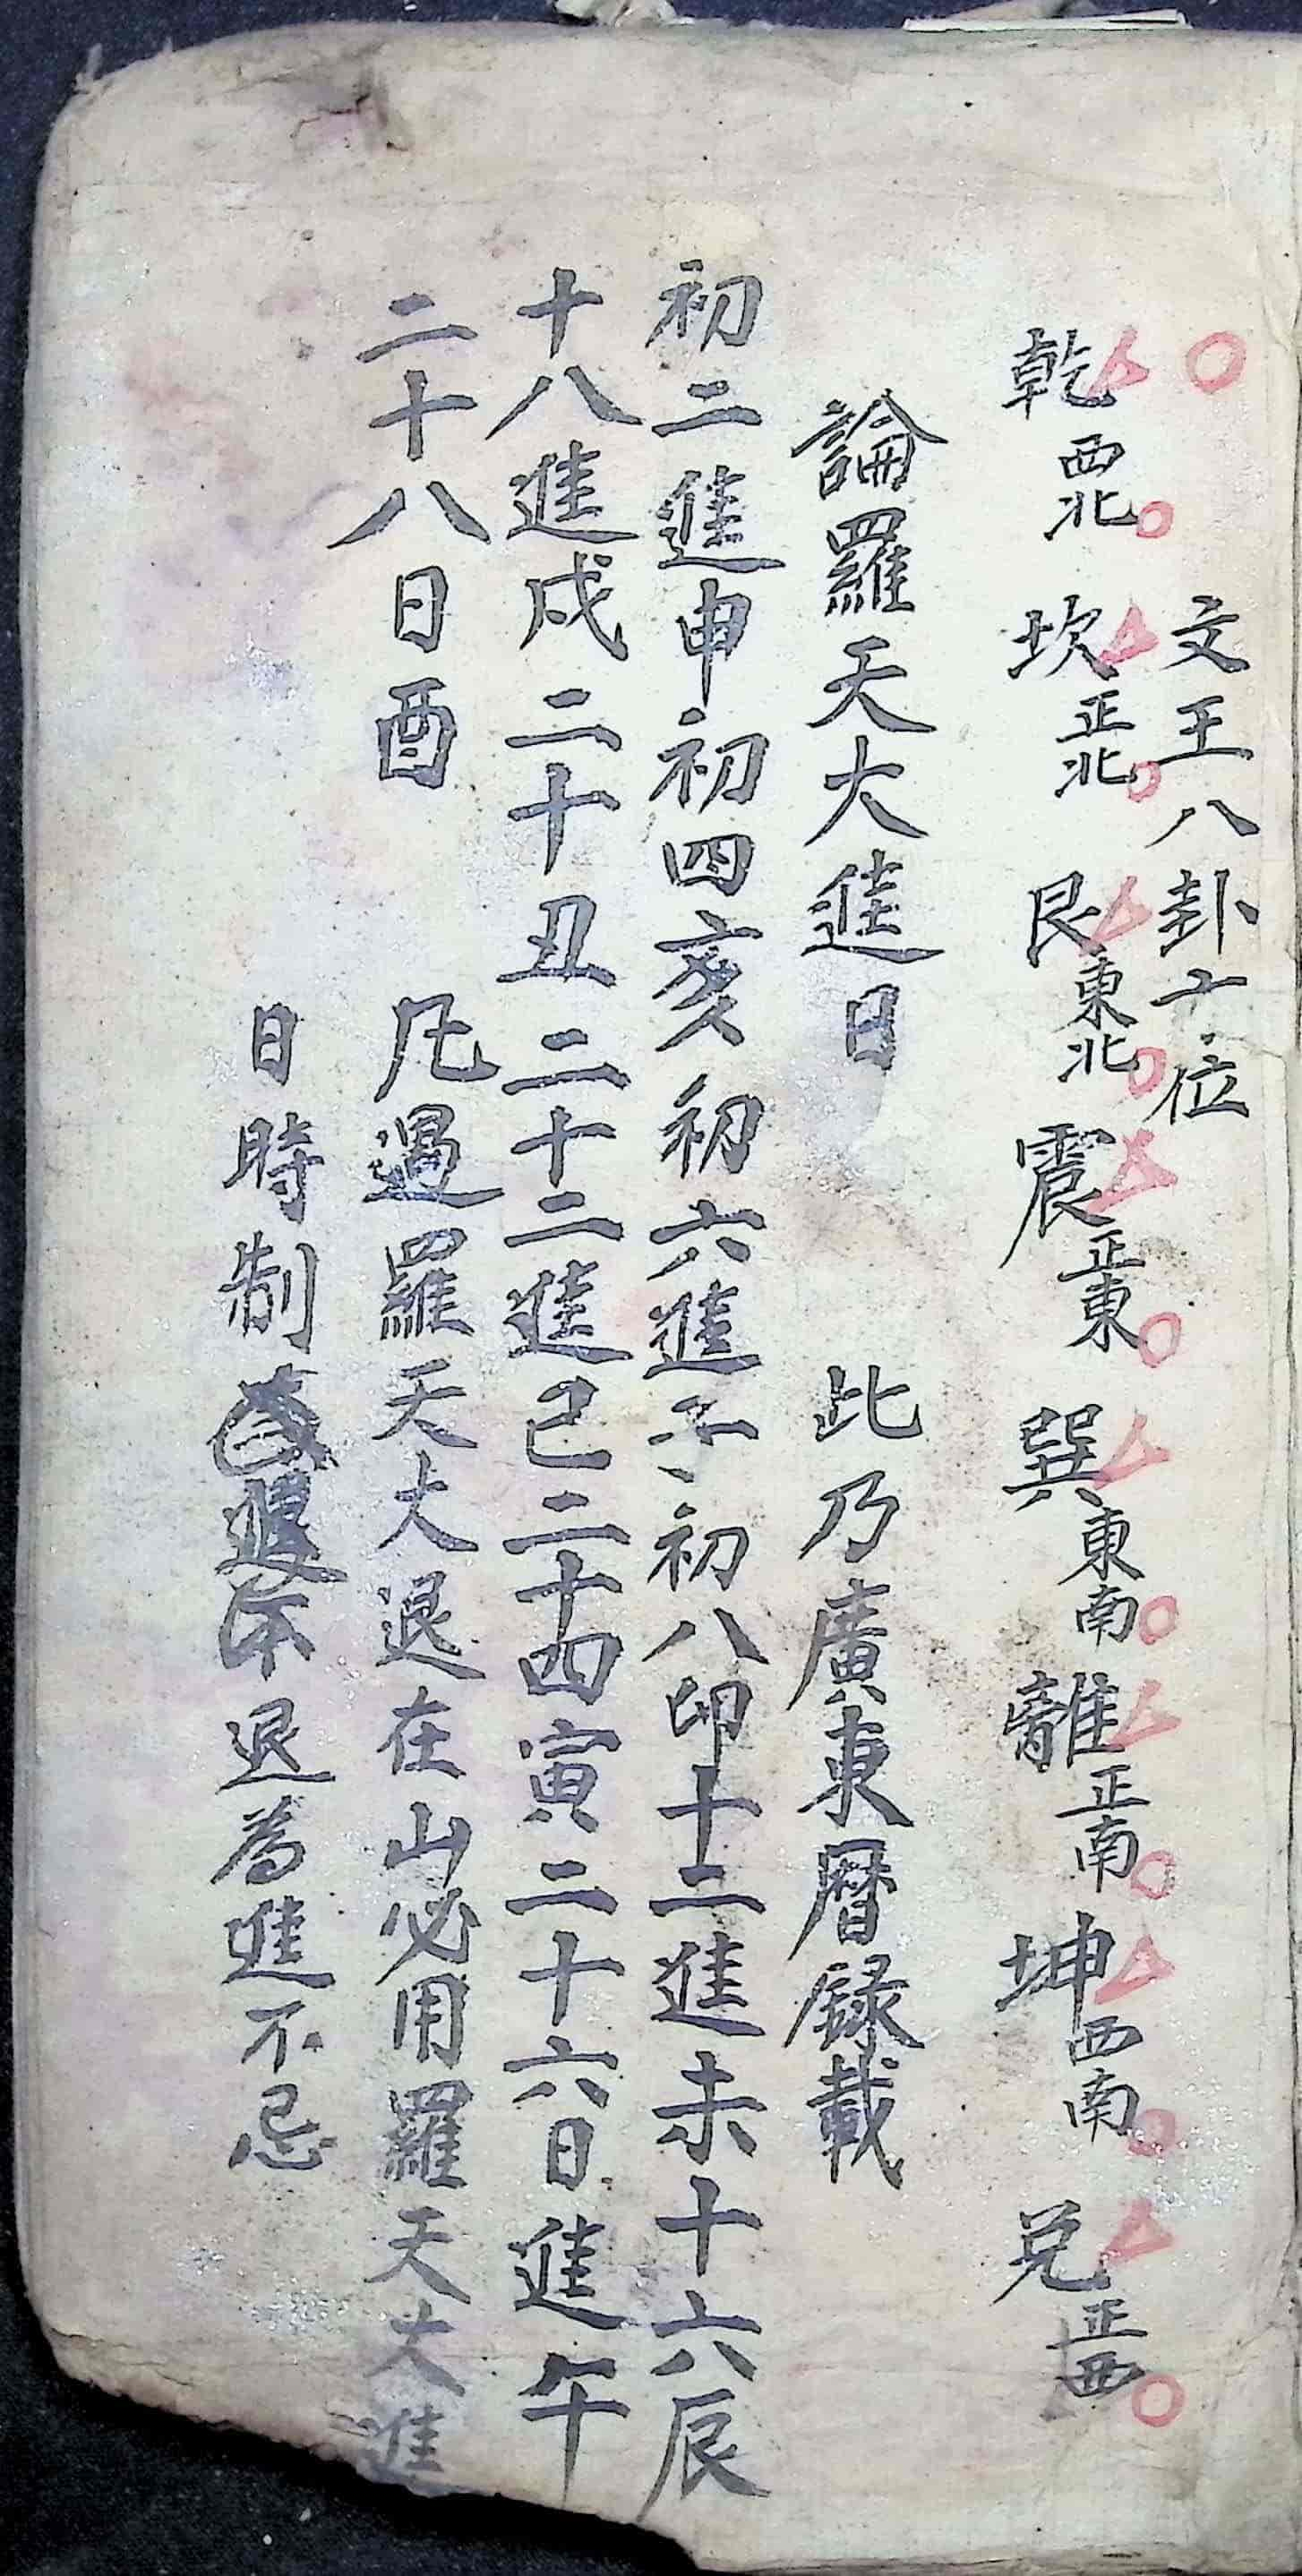 ○ 文王八卦十位
乾西北 坎正北 艮東北 震正東 巽東南 離正南 坤西南 兑正西
論羅天大進日 此乃廣東曆録載
初二進申初四亥初六進子初八卯十二進未十六辰
十八進戍二十丑二十二進己二十四寅二十六日進午
二十八日酉 凡遇羅天大退在山必用羅天大進
日時制退為進不忌